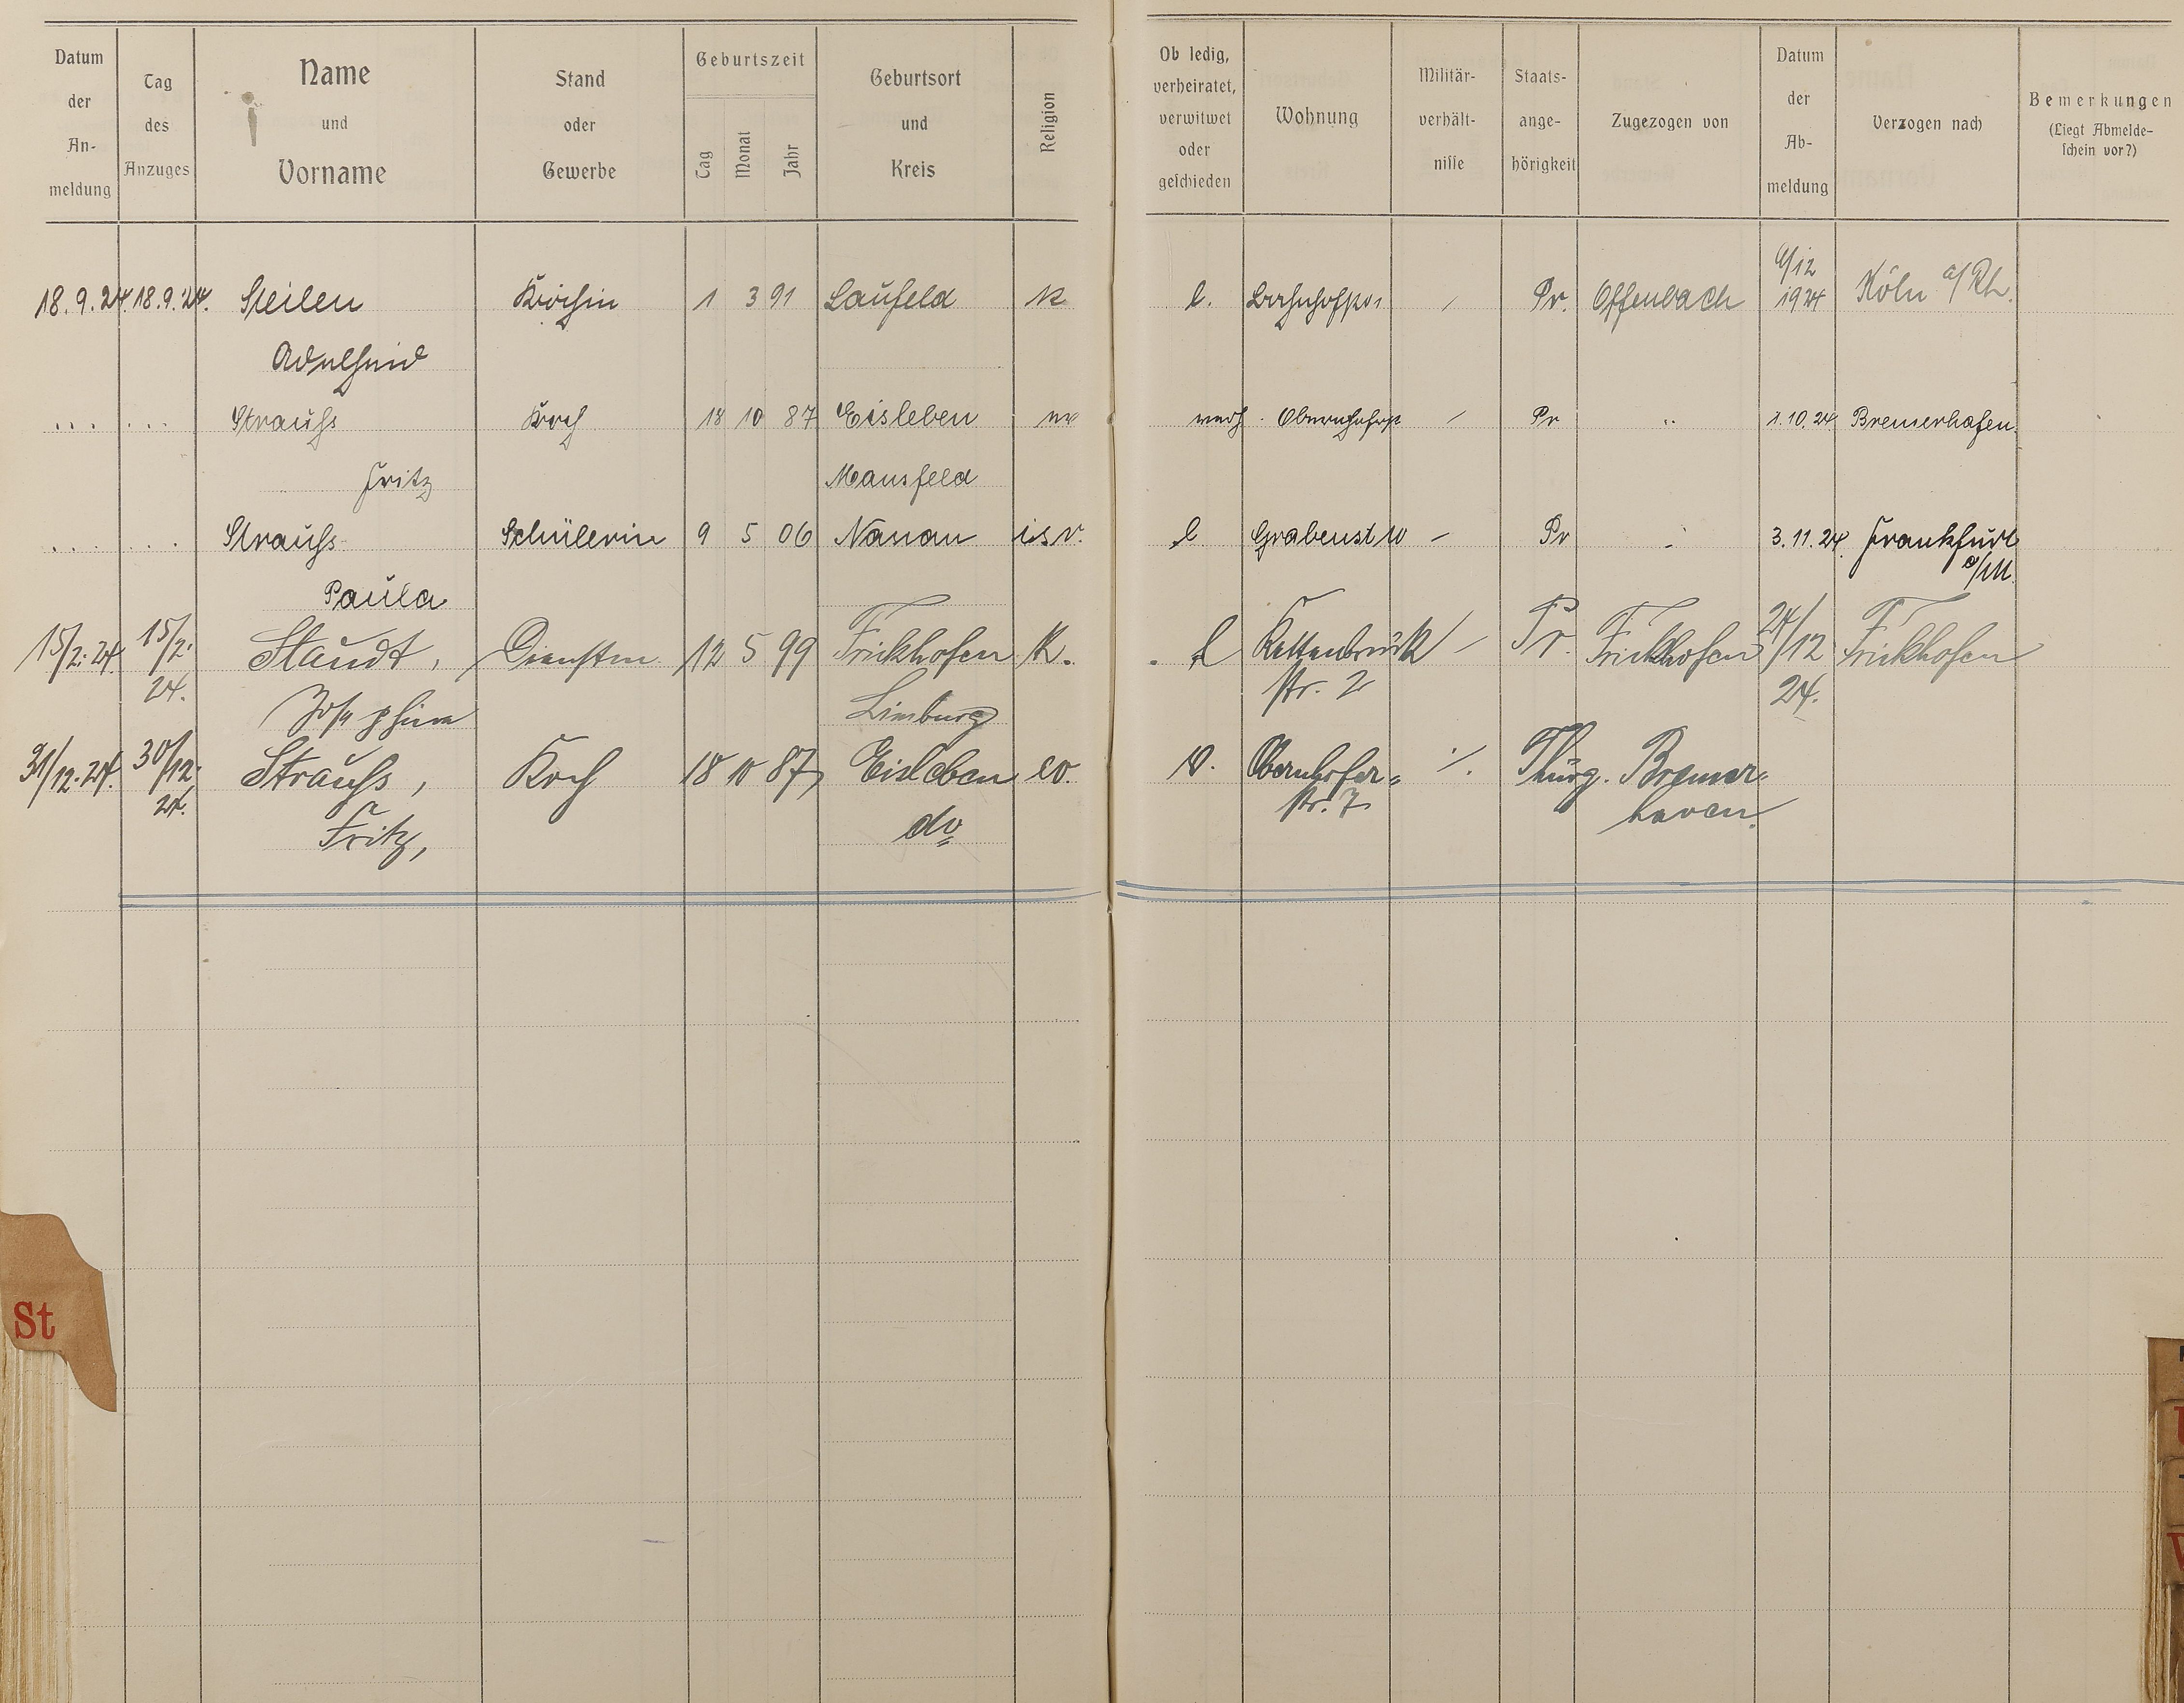 Datum der Anmeldung | Tag des Anzuges | Name und Vorname | Stand oder Gewerbe | Geburtszeit Tag Monat Jahr | Geburtsort und Kreis | Religion | Ob ledig, verheiratet, verwitwet oder geschieden | Wohnung | Militärverhältnisse | Staatsangehörigkeit | Zugezogen von | Datum der Abmeldung | Verzogen nach | Bemerkungen (Liegt Abmeldeschein vor?)
18.9.24 18.9.24. Steilen Köchin 1 3 91 Laufeld k l. / Pr. Offenbach /12 1924 Köln a/Rh.
Adelheid
... ... Strauss Koch 18 10 87 Eisleben ev verh. / Pr " 1.10.24 Bremerhafen.
Fritz Mansfeld
... ... Strauss Schülerin 9 5 06 isr. l Grabenst 10 – Pr " 3.11.24. Frankfurt
Paula a/M.
15/2.24. 15/2. Staudt, Dienstm. 12 5 99 Frickhofen K. l Kettenbrück – Pr. Frickhofen 24/12 Frickhofen
24. Josephine Limburg str. 2 24.
31/12.24. 30/12. Strauss, Koch 18 10 87, Eisleben ev. v. Obernhofer= ./. Thürg. Bremer=
24. Fritz, do str. 7 haven.
St